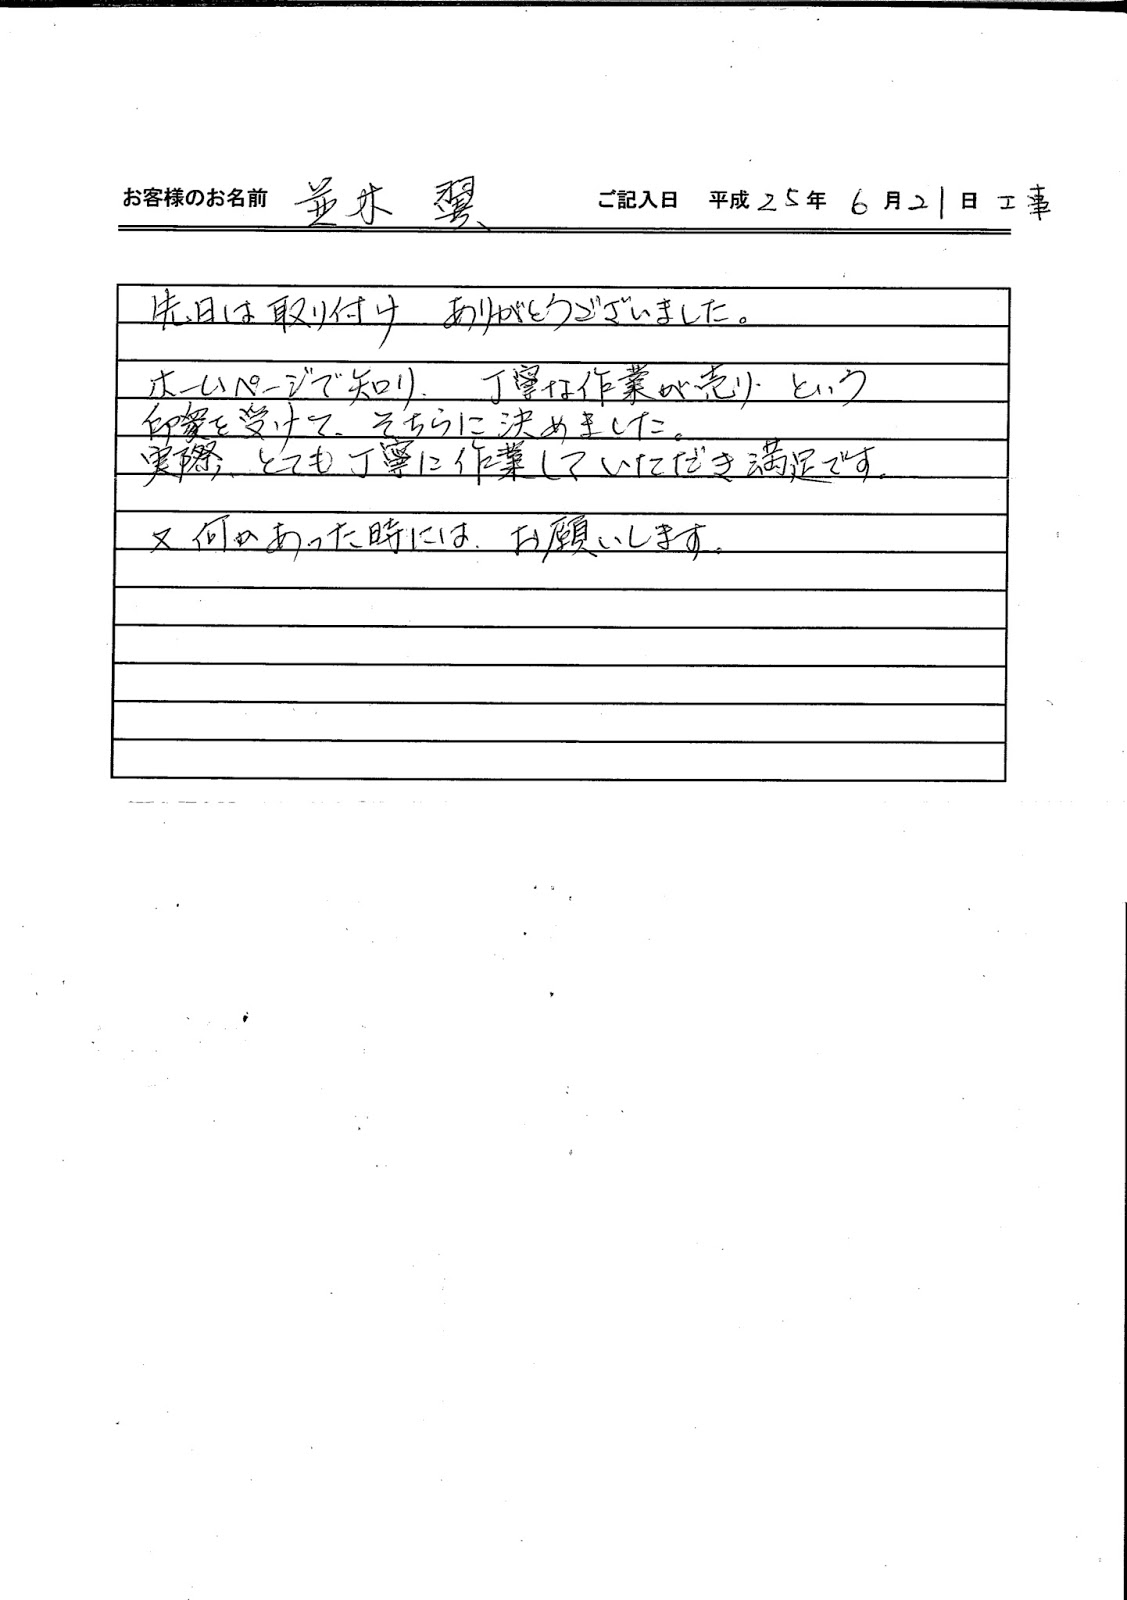 お客様のお名前 並木 翼 ご記入日 平成25年 6月21日 工事
先日は取り付け ありがとうございました。
ホームページで知り、 丁寧な作業が売り という
印象を受けて、そちらに決めました。
実際、とても丁寧に作業していただき満足です。
又 何かあった時には、お願いします。